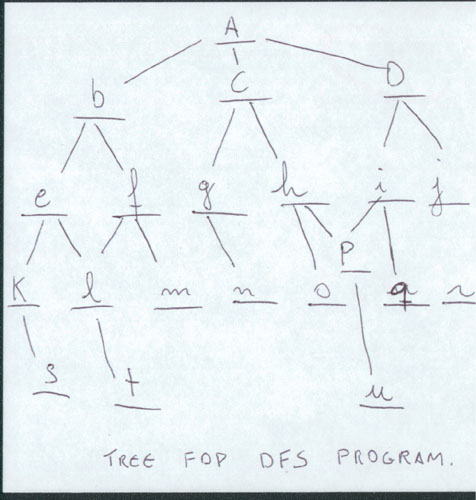 A
b C D
e f g h i j
P
K l m n o q r
s t u
TREE FOP DFS PROGRAM.